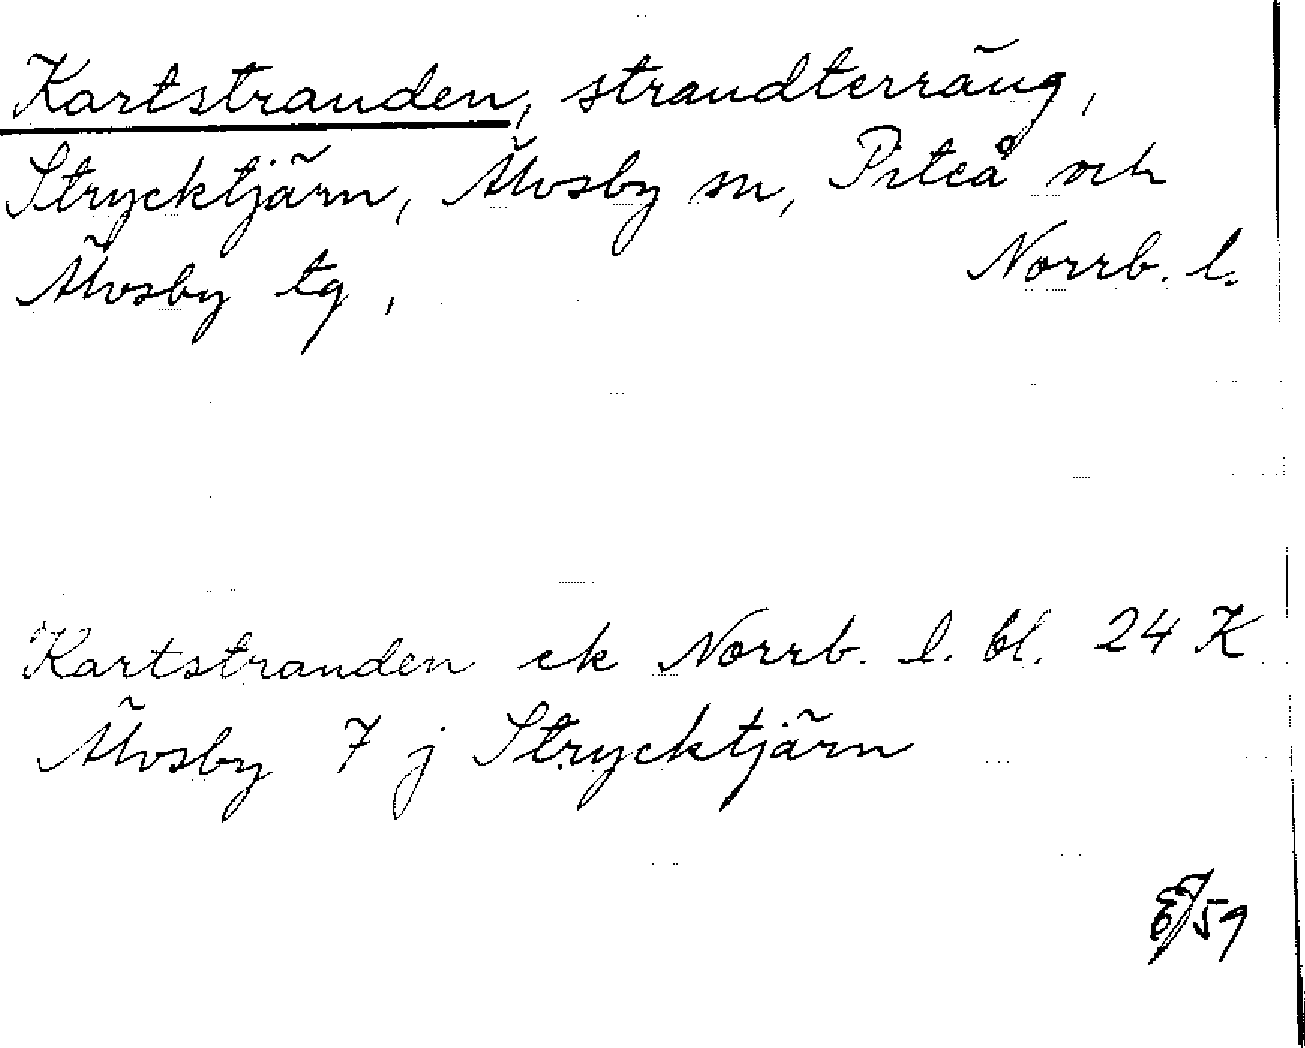 Kartstranden, strandterräng,
Strycktjärn, Älvsby sn, Piteå och
Älvsby tg, Norrb. l.
Kartstranden ek Norrb. l. bl. 24 K
Älvsby 7 j Strycktjärn
/59